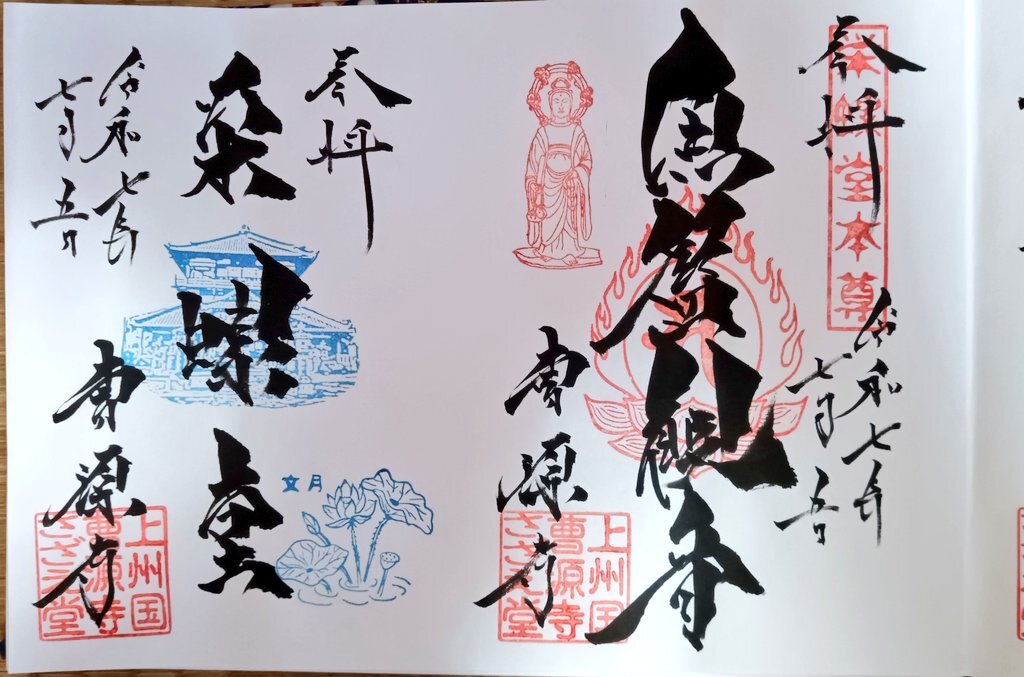 奉拝
栄螺堂本尊
令和七年
七月五日
魚籃観音
曹源寺
上州国
曹源寺
さざえ堂
奉拝
栄螺堂
文月
令和七年
七月五日
曹源寺
上州国
曹源寺
さざえ堂